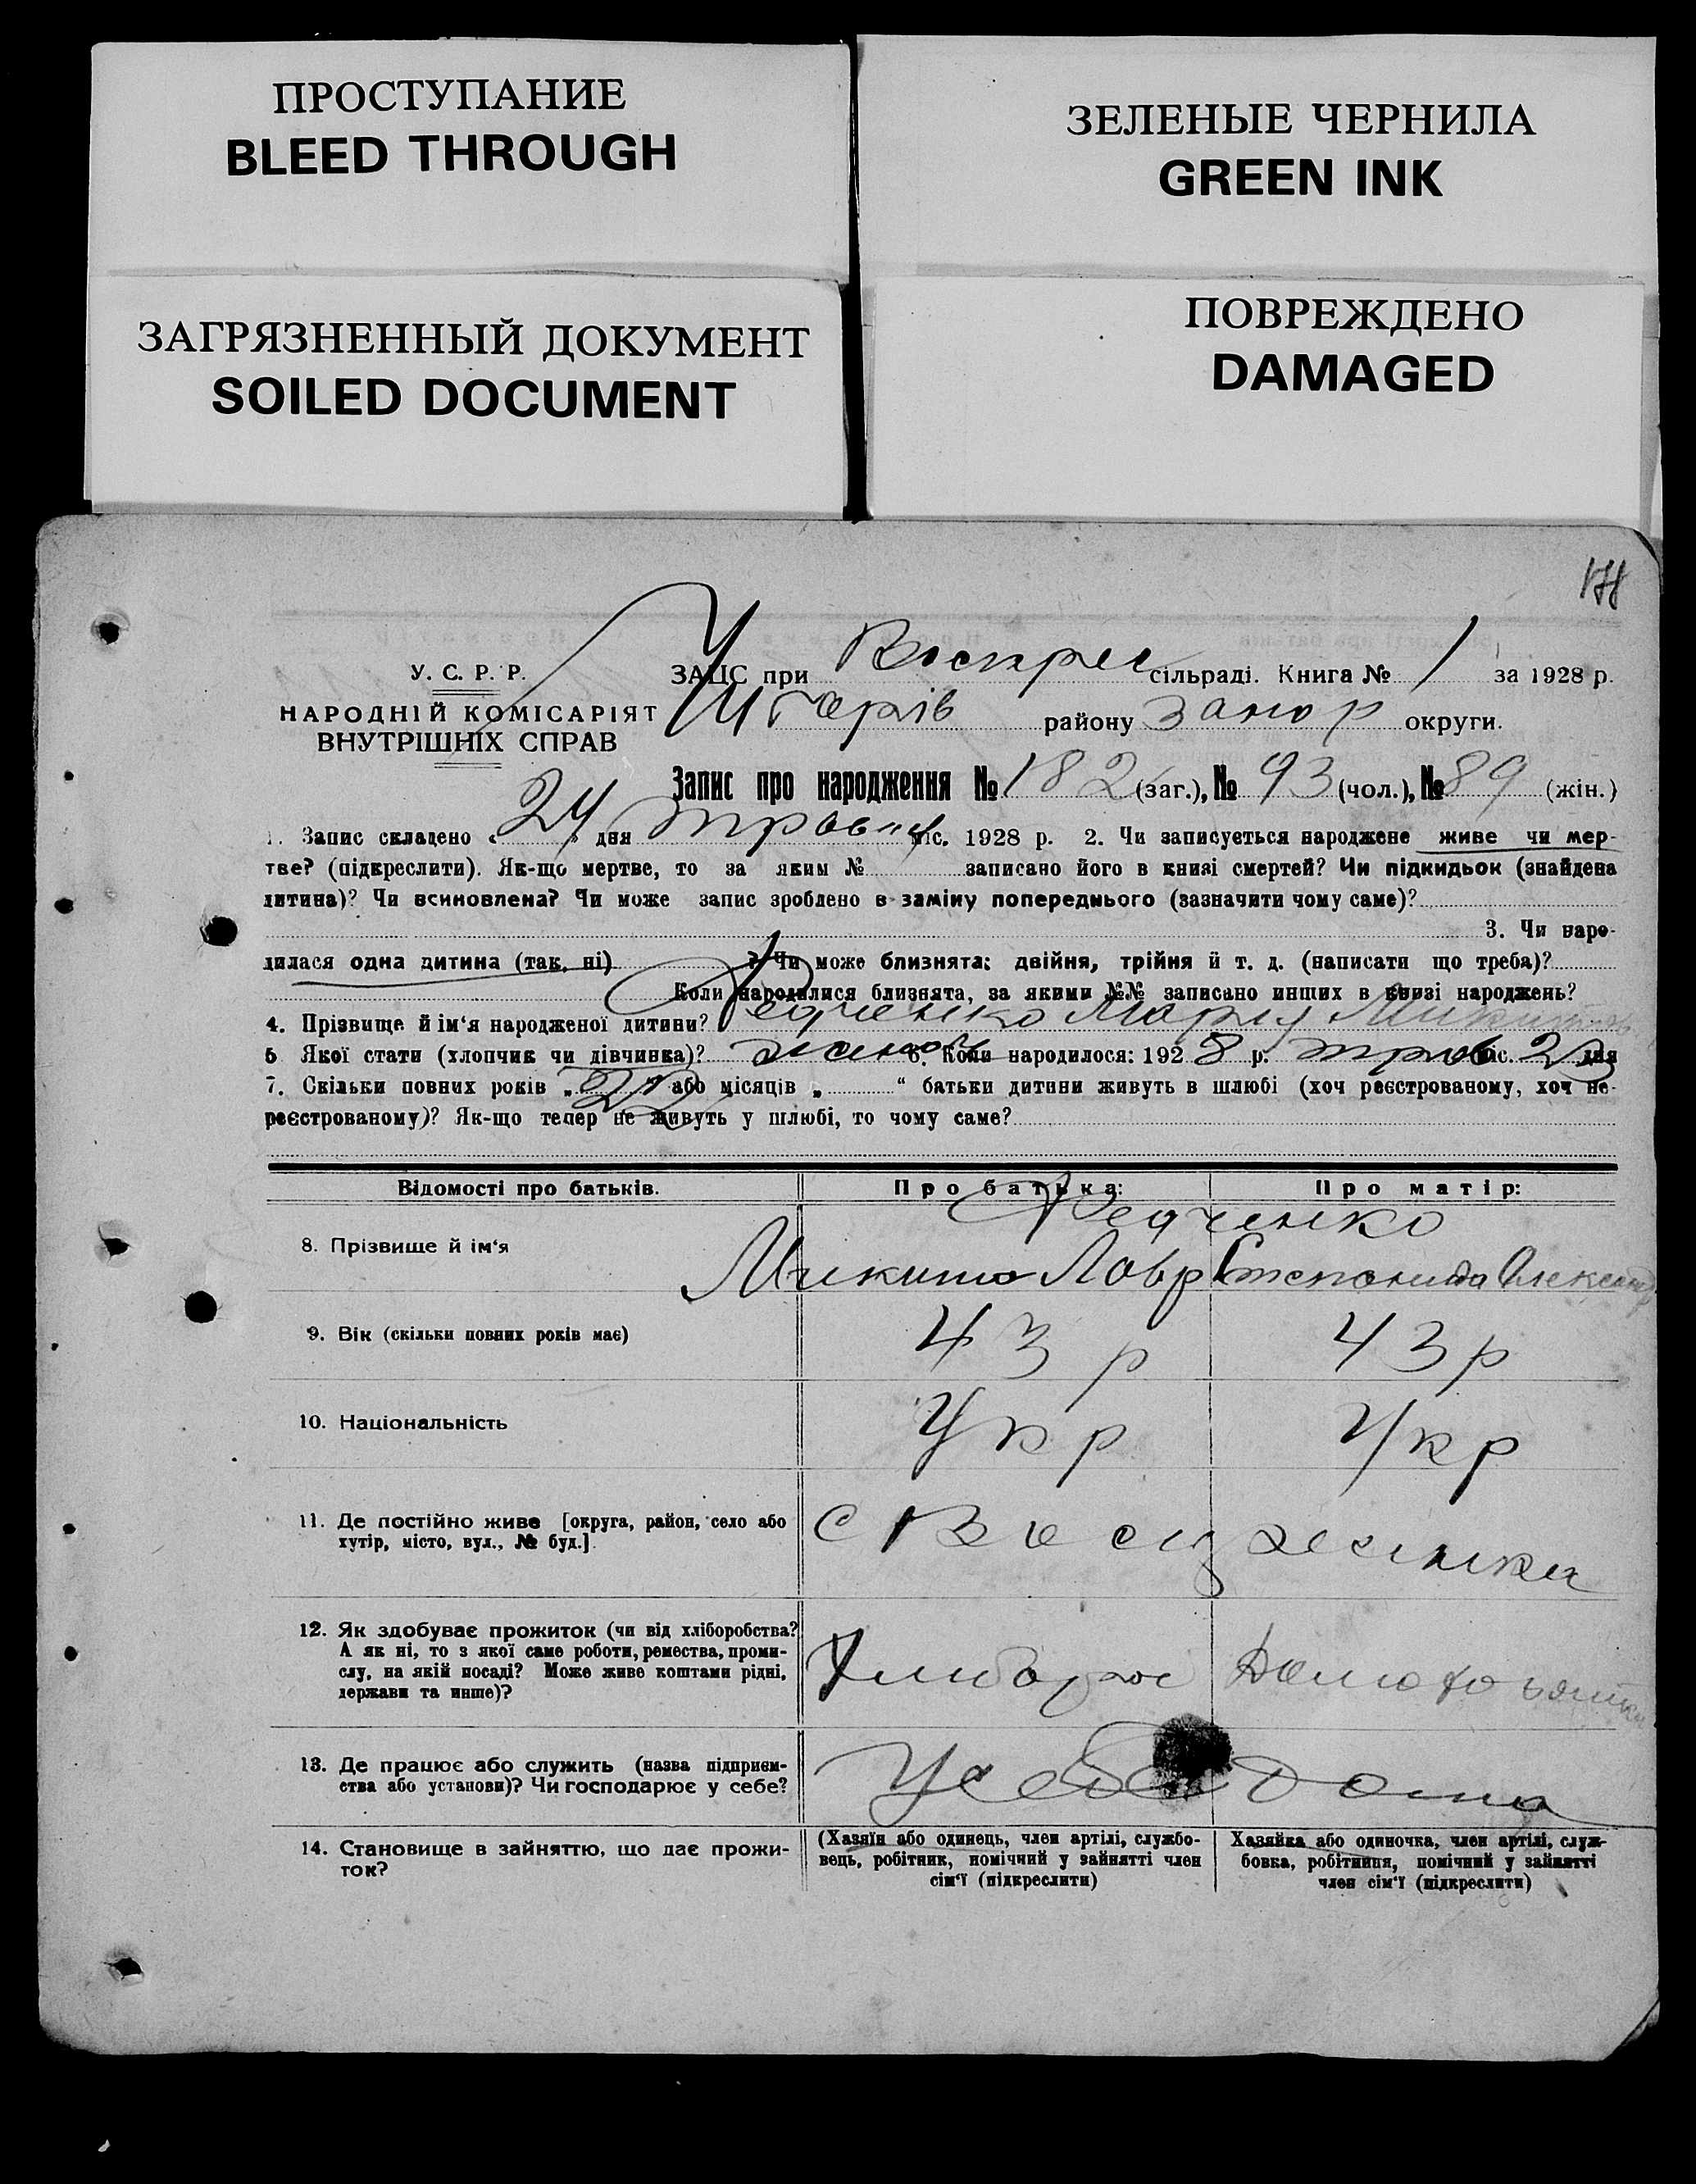 ПРОСТУПАНИЕ
BLEED THROUGH
ЗЕЛЕНЫЕ ЧЕРНИЛА
GREEN INK
ЗАГРЯЗНЕННЫЙ ДОКУМЕНТ
SOILED DOCUMENT
ПОВРЕЖДЕНО
DAMAGED
У. С. Р. Р.
НАРОДНІЙ КОМІСАРІЯТ
ВНУТРІШНІХ СПРАВ
ЗАЦС при Воскрес сільраді. Книга № 1 за 1928 р.
району Запор округи.
Запис про народження № 182 (заг.), № 93 (чол.), № 89 (жін.)
1. Запис складено « 24 » дня травня міс. 1928 р. 2. Чи записується народжене живе чи мер-
тве? (підкреслити). Як-що мертве, то за яким № записано його в книзі смертей? Чи підкидьок (знайдена
дитина)? Чи всиновлена? Чи може запис зроблено в заміну попереднього (зазначити чому саме)?
3. Чи наро-
дилася одна дитина (так, ні) ? Чи може близнята: двійня, трійня й т. д. (написати що треба)?
Коли народилися близнята, за якими №№ записано инших в книзі народжень?
4. Прізвище й ім‘я народженої дитини? Редченко Марія
5 Якої стати (хлопчик чи дівчинка)? 6. Коли народилося: 192 8 р. трав міс. дня
7. Скільки повних років „ 22 “ або місяців „ “ батьки дитини живуть в шлюбі (хоч реєстрованому, хоч не-
реєстрованому)? Як-що тепер не живуть у шлюбі, то чому саме?
Відомості про батьків. Про батька: Про матір:
Редченко
8. Прізвище й ім‘я Микита Лавр Степанида Олександ
9. Вік (скільки повних років має) 43 р 43 р
10. Національність Укр Укр
11. Де постійно живе [округа, район, село або
хутір, місто, вул., № буд.] с
12. Як здобуває прожиток (чи від хліборобства?
А як ні, то з якої саме роботи, ремества, проми-
слу, на якій посаді? Може живе коштами рідні,
держави та инше)?
13. Де працює або служить (назва підприєм-
ства або установи)? Чи господарює у себе? У себе Дома
14. Становище в зайняттю, що дає прожи-
ток?
(Хазяїн або одинець, член артілі, службо-
вець, робітник, помічний у зайнятті член
сім‘ї (підкреслити)
Хазяйка або одиночка, член артілі, служ-
бовка, робітниця, помічний у зайнятті
член сім‘ї (підкреслити)